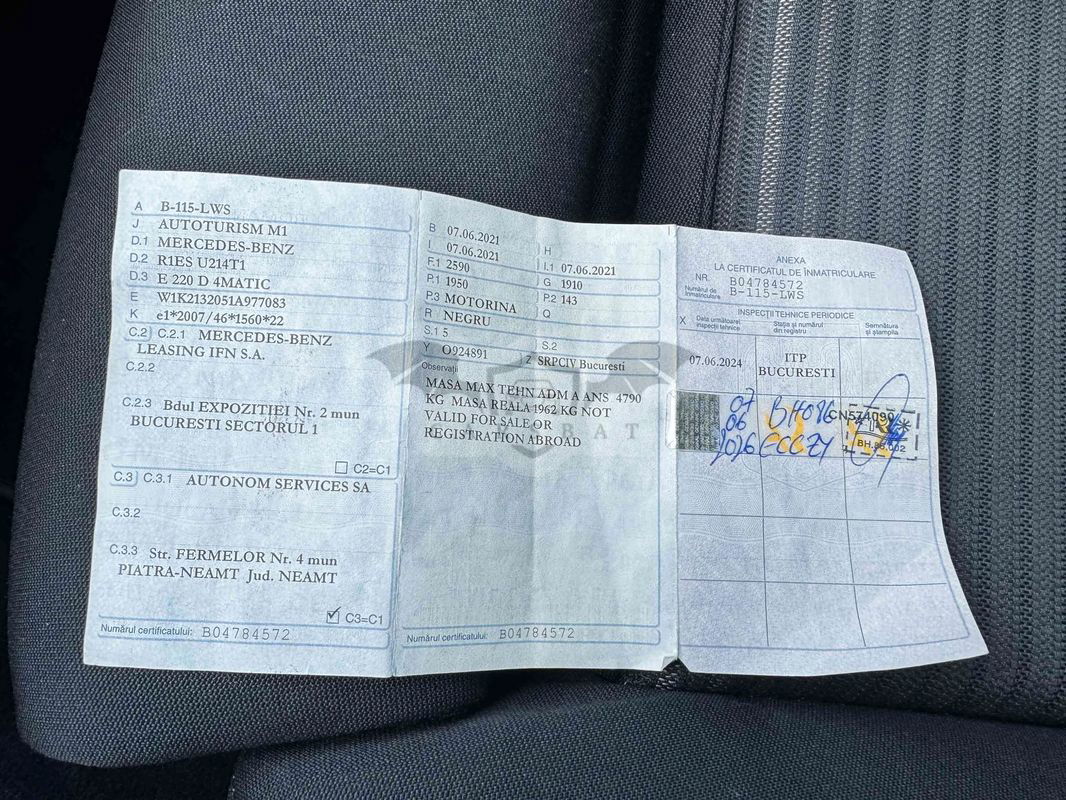 A B-115-LWS
J AUTOTURISM M1
D.1 MERCEDES-BENZ
D.2 R1ES U214T1
D.3 E 220 D 4MATIC
E W1K2132051A977083
K e1*2007/46*1560*22
C.2 C.2.1 MERCEDES-BENZ
LEASING IFN S.A.
C.2.2
C.2.3 Bdul EXPOZITIEI Nr. 2 mun
BUCURESTI SECTORUL 1
C2=C1
C.3 C.3.1 AUTONOM SERVICES SA
C.3.2
C.3.3 Str. FERMELOR Nr. 4 mun
PIATRA-NEAMT Jud. NEAMT
C3=C1
Numărul certificatului: B04784572
B 07.06.2021 H
I 07.06.2021 I.1 07.06.2021
F.1 2590 G 1910
P.1 1950 P.2 143
P.3 MOTORINA Q
R NEGRU
S.1 5 S.2
Y O924891 Z SRPCIV Bucuresti
Observații
MASA MAX TEHN ADM A ANS 4790
KG MASA REALA 1962 KG NOT
VALID FOR SALE OR
REGISTRATION ABROAD
Numărul certificatului: B04784572
ANEXA
LA CERTIFICATUL DE ÎNMATRICULARE
NR. B04784572
Numărul de înmatriculare B-115-LWS
INSPECȚII TEHNICE PERIODICE
X Data următoarei inspecții tehnice Stația și numărul din registru Semnătura și ștampila
07.06.2024 ITP
BUCURESTI
07 BH086 CN574090
06
2026 BH.86.002
SBAT